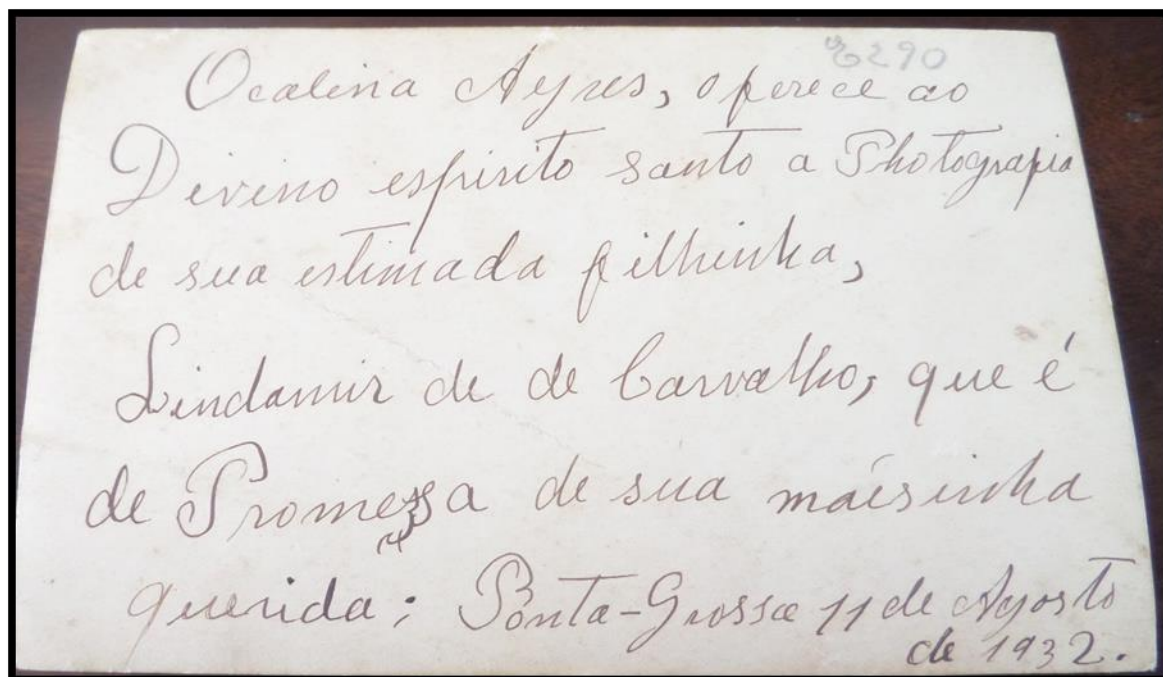 6290
Ocalina Ayres, oferece ao
Divino espirito santo a Photografia
de sua estimada filhinha,
Lindamir de de Carvalho, que é
de Promessa de sua máisinha
querida; Ponta-Grossa 11 de Agosto
de 1932.